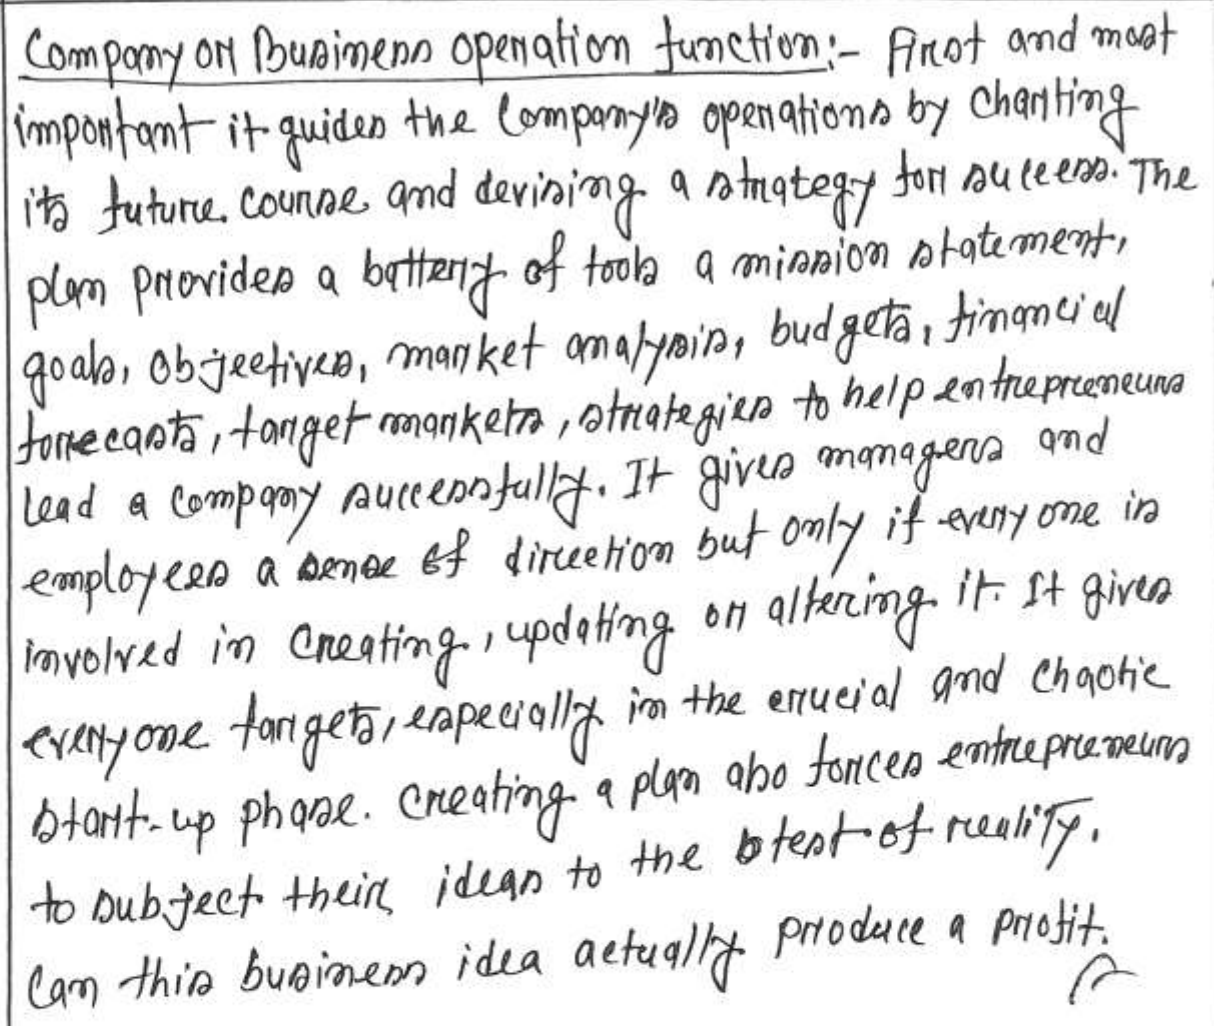 Company or Business operation function:- First and most
important it guides the Company's operations by Charting
its future course and devising a strategy for success. The
plan provides a battery of tools a mission statement,
goals, objectives, market analysis, budgets, financial
forecasts, target markets, strategies to help entrepreneurs
lead a company successfully. It gives managers and
employees a sense of direction but only if everyone is
involved in Creating, updating or altering it. It gives
everyone targets, especially in the crucial and chaotic
start-up phase. Creating a plan also forces entrepreneurs
to subject their ideas to the test of reality.
Can this business idea actually produce a profit.